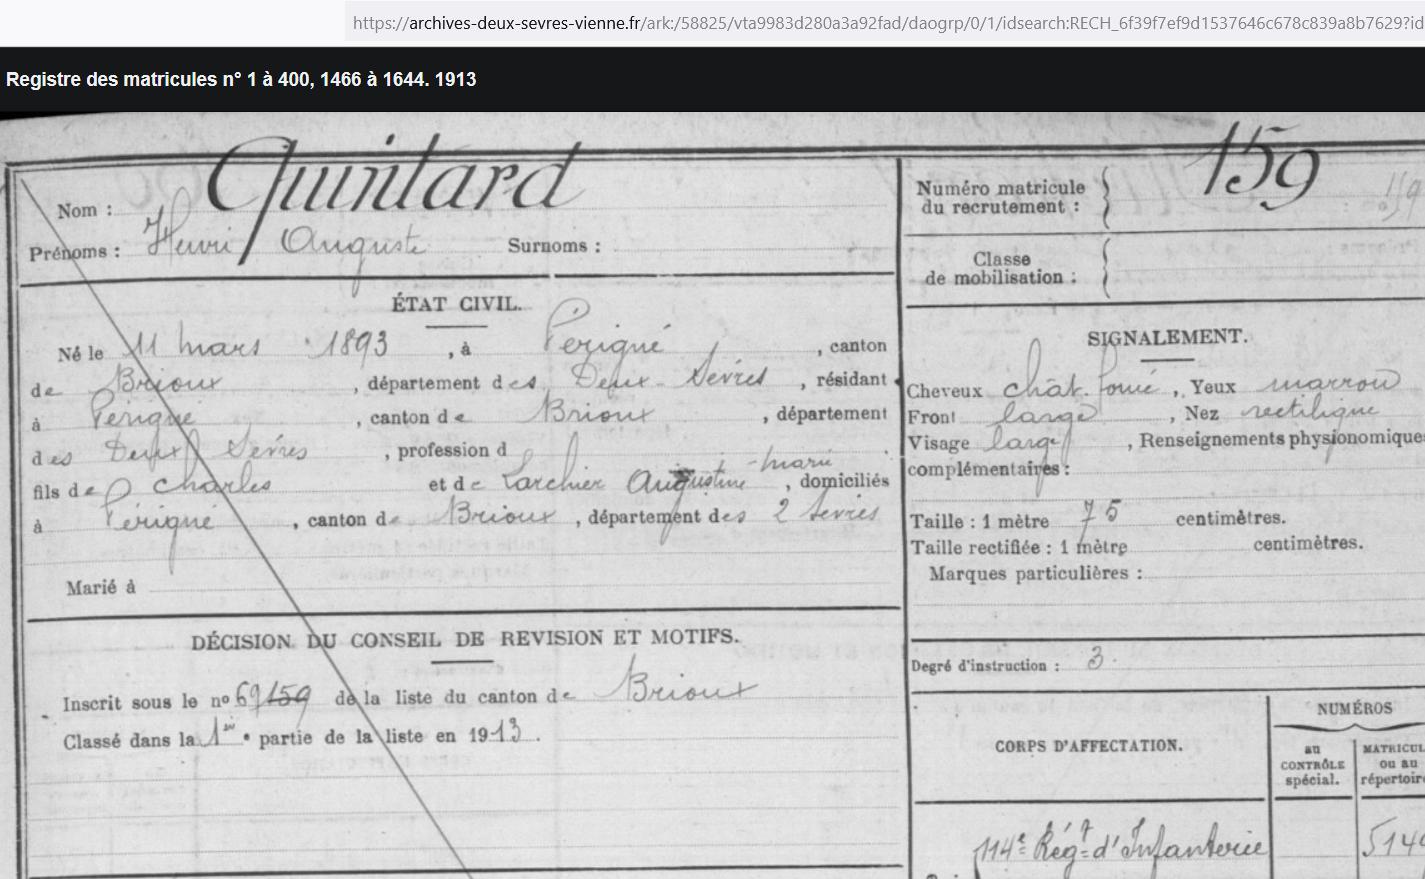 https://archives-deux-sevres-vienne.fr/ark:/58825/vta9983d280a3a92fad/daogrp/0/1/idsearch:RECH_6f39f7ef9d1537646c678c839a8b7629?id
Registre des matricules n° 1 à 400, 1466 à 1644. 1913
Nom : Quintard
Prénoms : Henri Auguste Surnoms :
ÉTAT CIVIL.
Né le 11 mars 1893, à Périgné, canton
de Brioux, département des Deux-Sèvres, résidant
à Périgné, canton de Brioux, département
des Deux Sèvres, profession d
fils de Charles et de Larchier Augustine-marie, domiciliés
à Périgné, canton de Brioux, département des 2 Sèvres
Marié à
DÉCISION DU CONSEIL DE REVISION ET MOTIFS.
Inscrit sous le n° 69 159 de la liste du canton de Brioux
Classé dans la 1re partie de la liste en 1913.
Numéro matricule
du recrutement :
159
159
Classe
de mobilisation :
SIGNALEMENT.
Cheveux chât. foncé, Yeux marron
Front large, Nez rectiligne
Visage large, Renseignements physionomique
complémentaires :
Taille : 1 mètre 75 centimètres.
Taille rectifiée : 1 mètre centimètres.
Marques particulières :
Degré d'instruction : 3.
CORPS D'AFFECTATION.
NUMÉROS
au
CONTRÔLE
spécial.
MATRICUL
ou au
répertoire
114e Régt d'Infanterie
514